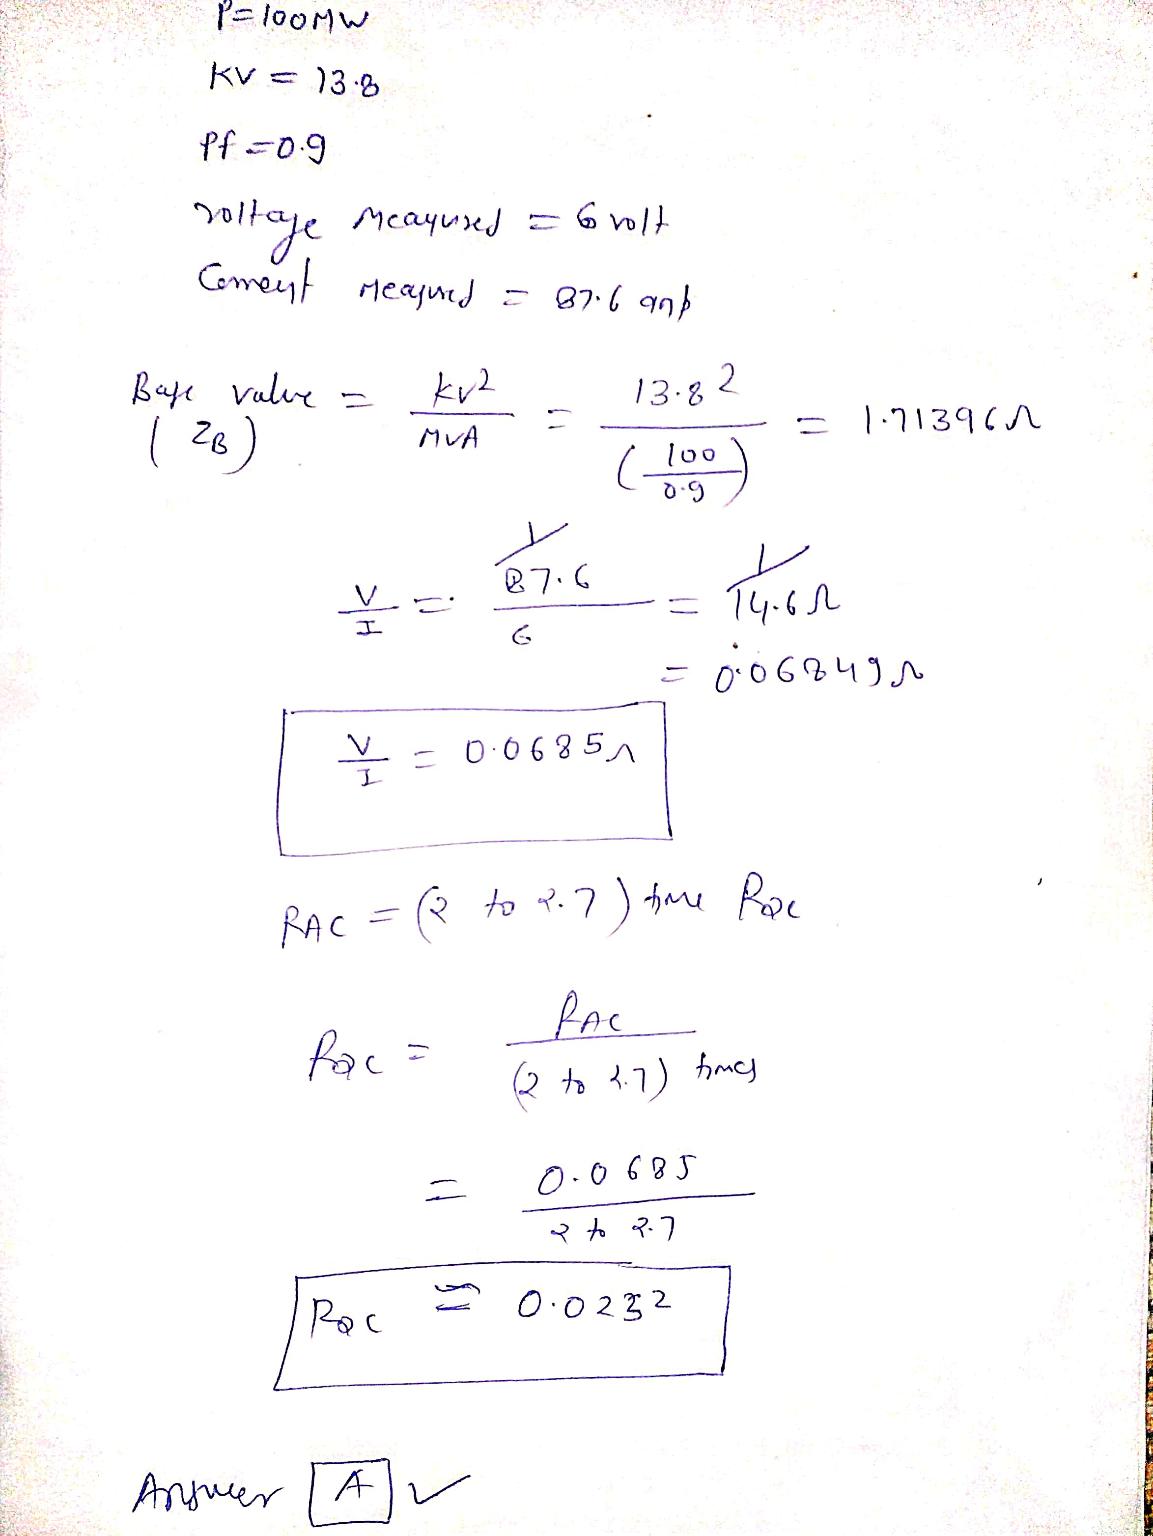 P=100MW
KV = 13.8
Pf =0.9
voltage Measured = 6 volt
Current Measured = 87.6 amp
Base value = kv2 / MVA = 13.8 2 / (100 / 0.9) = 1.71396Ω
(ZB)
V / I = 1/ 87.6 / 6 = 1/ 14.6Ω
= 0.06849Ω
V / I = 0.0685Ω
RAC = (2 to 2.7) time RDC
RDC = RAC / (2 to 2.7) times
= 0.0685 / 2 to 2.7
RDC ≈ 0.0232
Answer A ✓